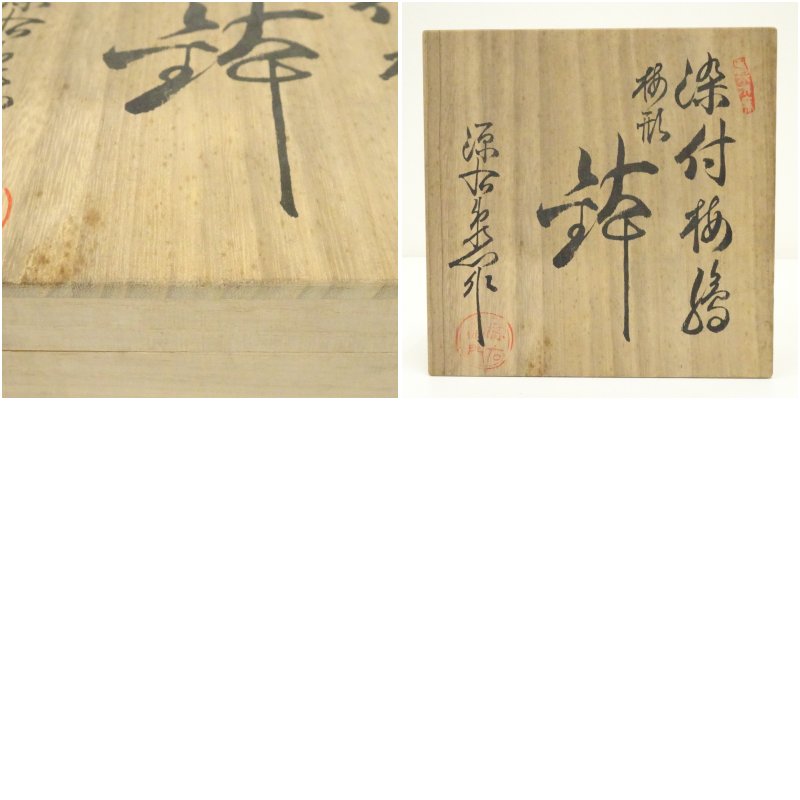 鉢
染付梅
梅形
鉢
源右衛門作